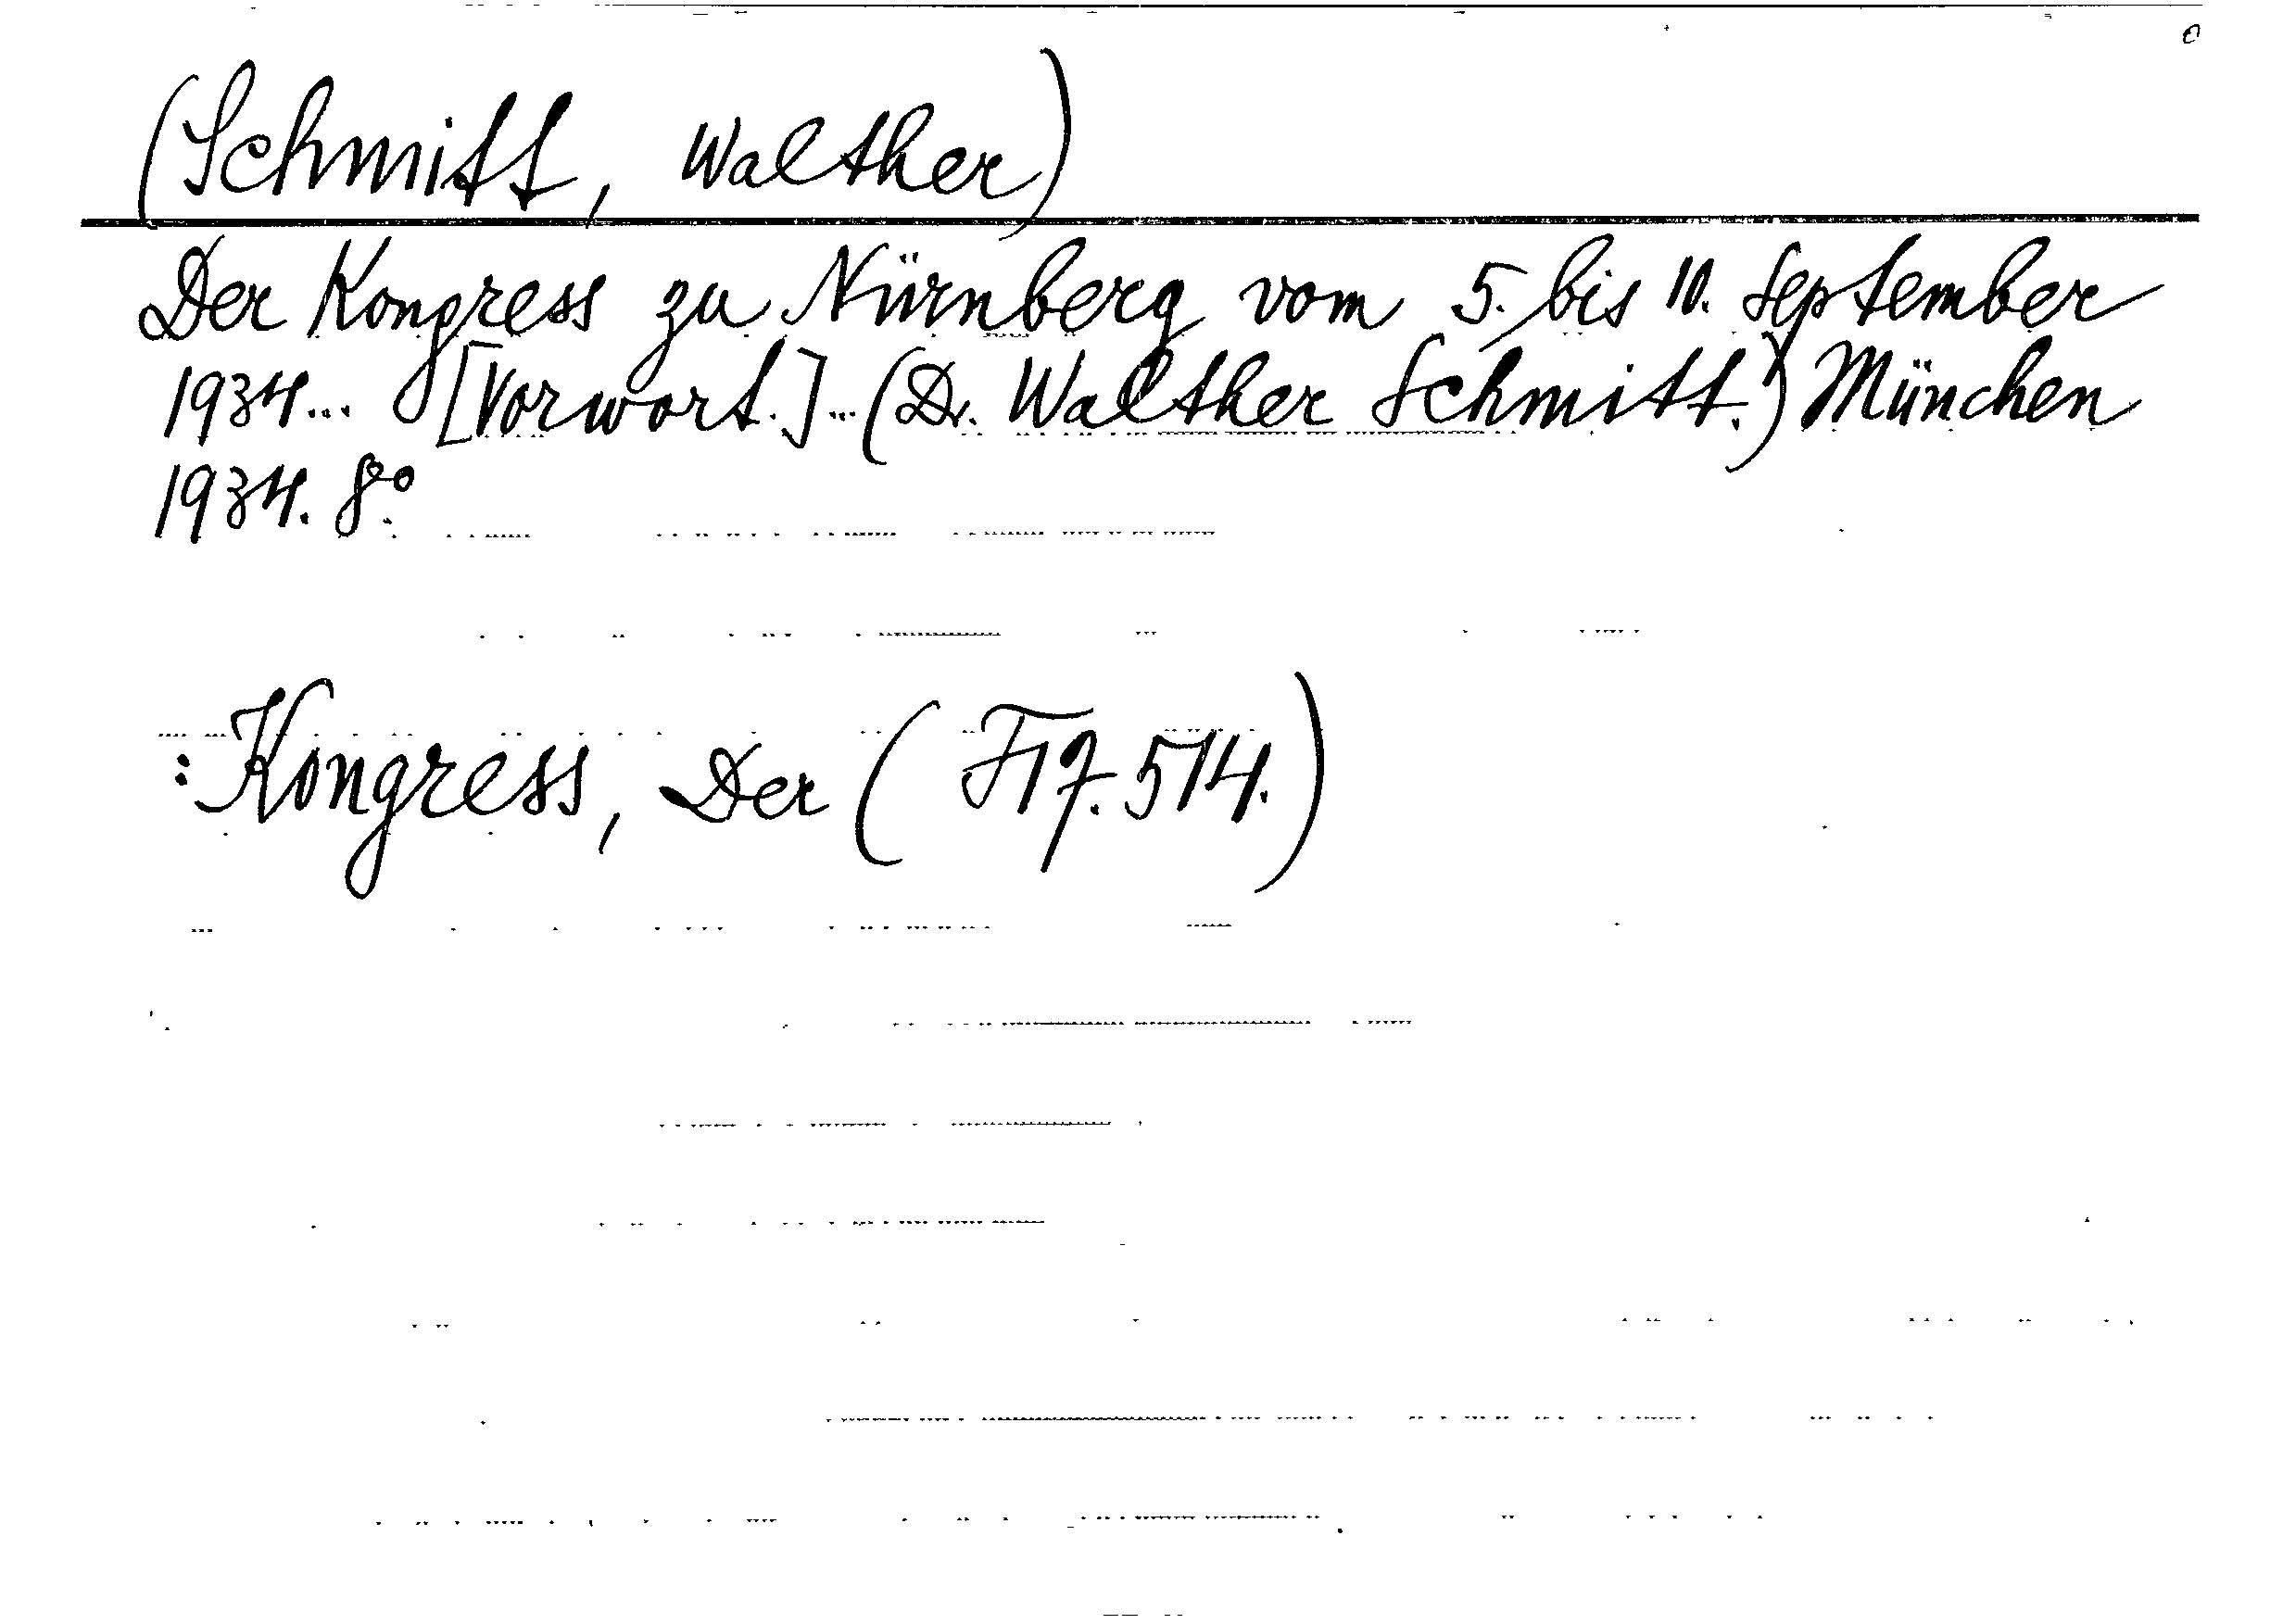 (Schmitt, Walther)
Der Kongress zu Nürnberg vom 5. bis 10. September
1934... [Vorwort.]...(Dr. Walther Schmitt.) München
1934. 8°.
: Kongress, Der ( F17. 514.)